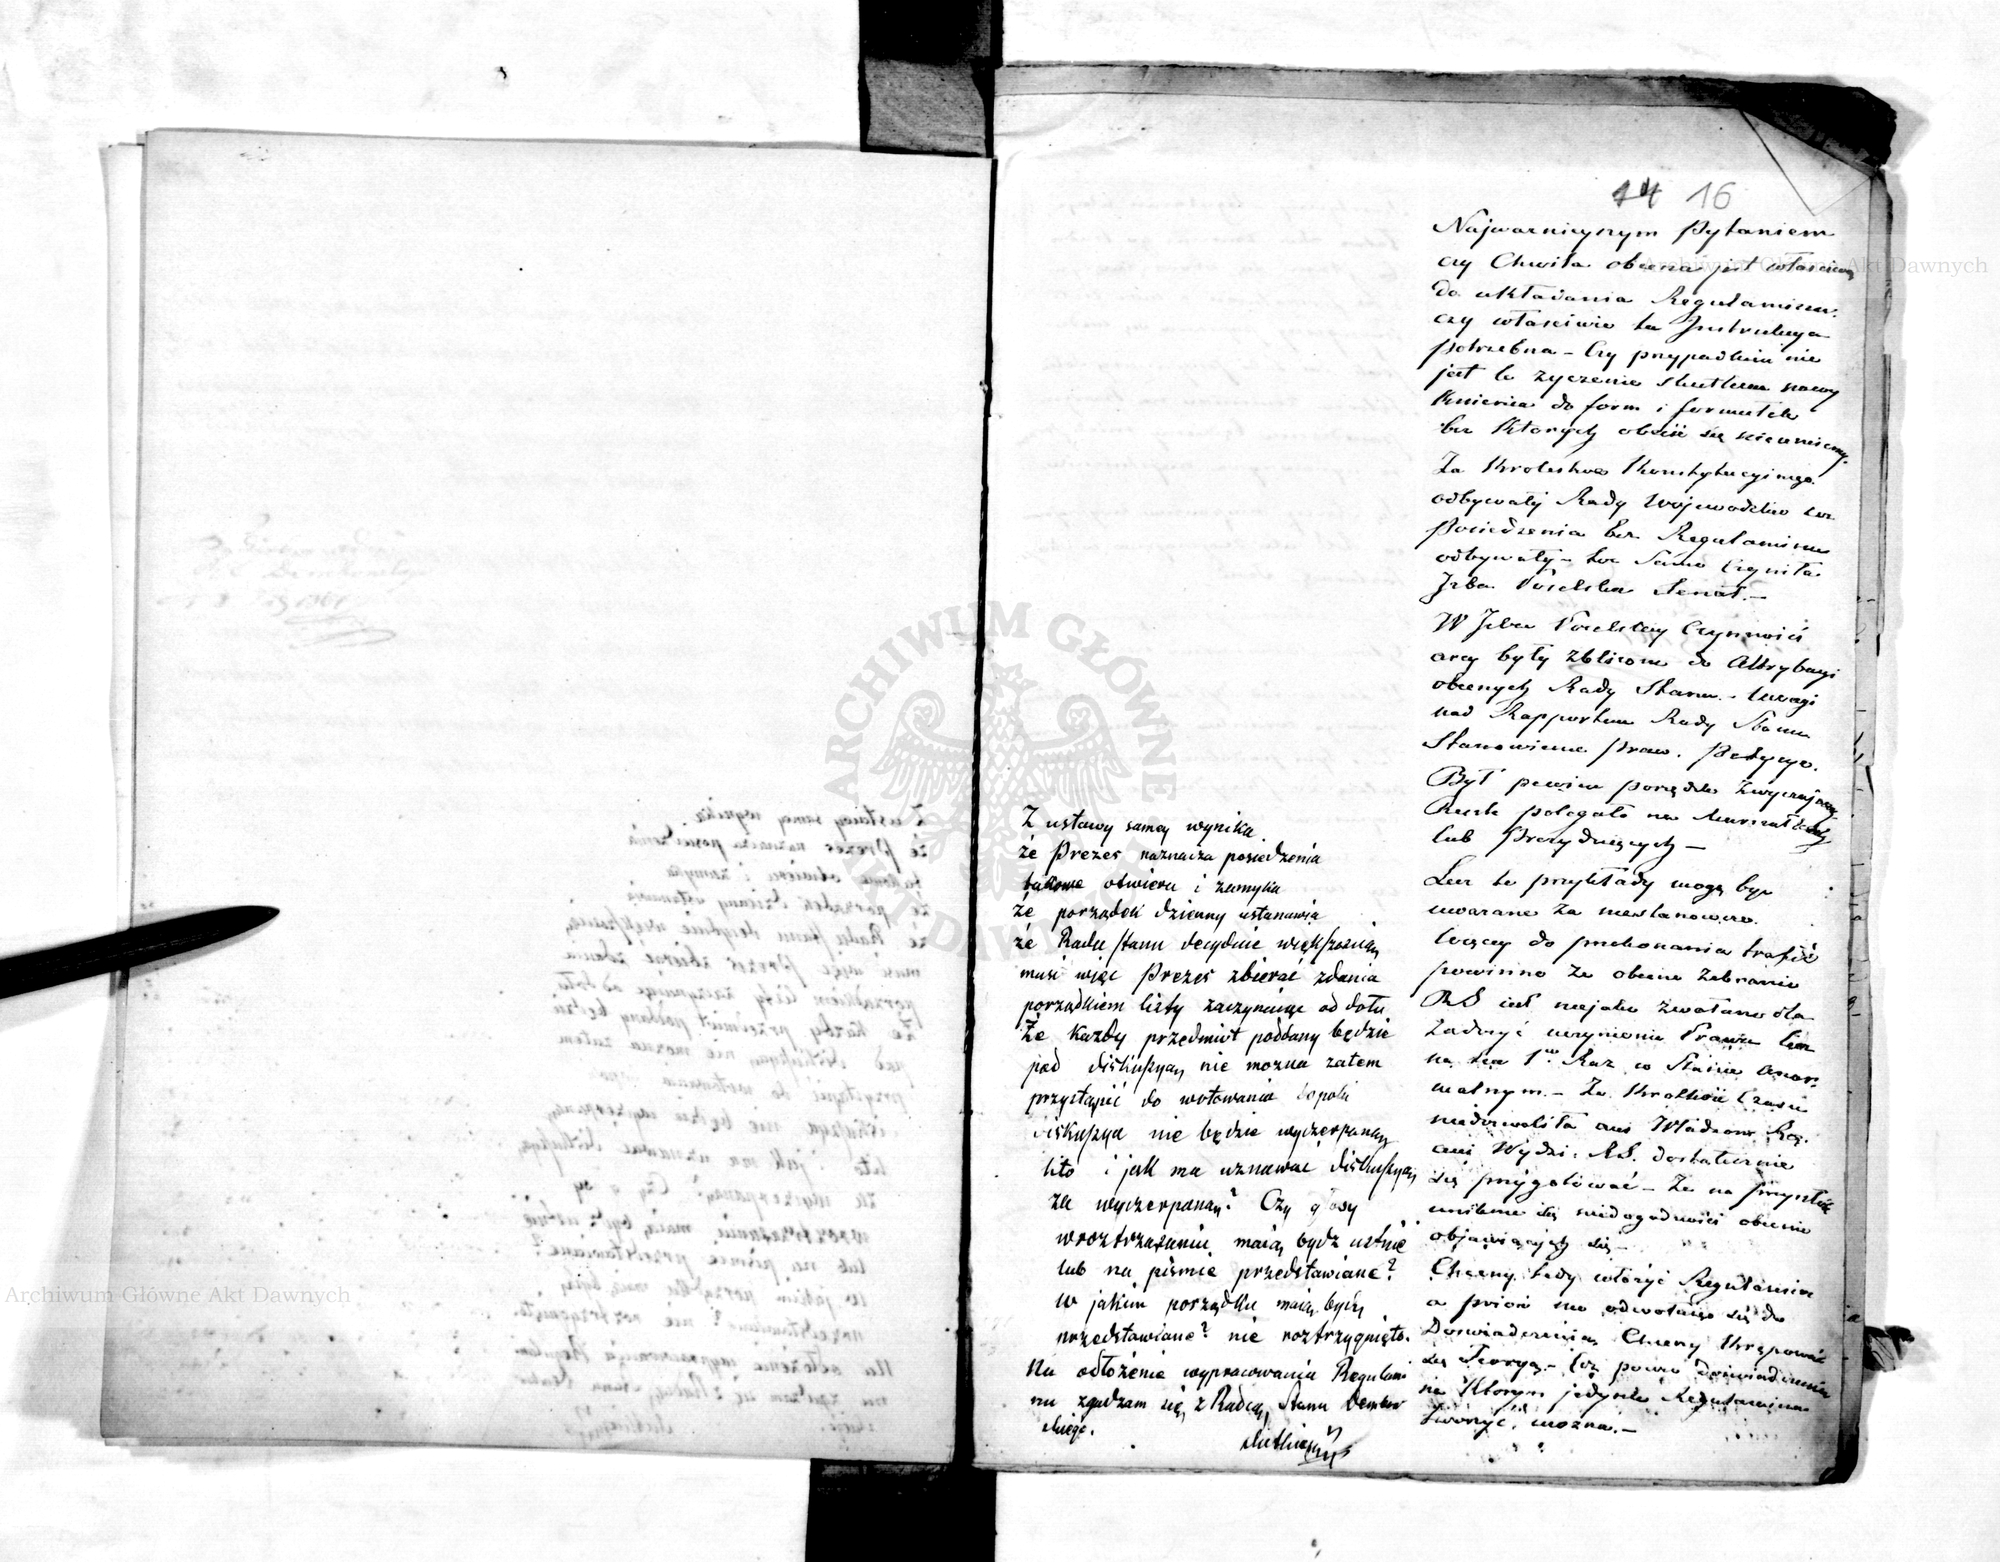 14 16
Najważnieyszym Pytaniem
czy Chwila obecna jest właściwą
do układania Regulaminu.
czy właściwie ta Instrukcya
potrzebna – Czy przypadkiem nie
jest to życzenie skutkiem naszey
do form i formułek
bez Których obeiść się nieumiemy.
Za Krolestwa Konstytucyinego
odbywały Rady Wojewodzkie swe
Posiedzenia bez Regulaminu
odbywały – toz Samo Czyniła
Izba Poselska Senat. –
W Izbie Poselskiey Czynności
były zbliżone do Attrybucyi
obecnych Rady Stanu. – Uwagi
nad Rapportem Rady Stanu
Stanowienie praw. Petycye.
Był pewien porządek Zwyczajowy
Reszta polegała na
lub Prezydujących –
Lecz te przykłady mogą być
uwazane za
Więcey do przekonania trafić
powinno że obecne Zebranie
R S iest niejako zwołane dla
Zadosyć uczynienia Prawu
na 1. Raz w Stanie anor-
malnym. – Ze Krotkość Czasu
niedozwoliła ani
ani Wydz: R.S. dostatecznie
się przygotować – Ze na przyszłość
niedogodności obecnie
objawiających się –
Chcemy tedy ułożyć Regulamin
a priori nie odwołując się do
Doswiadczenia, Chcemy Krępować
się Teoryą –
Którym jedynie Regulamina
tworzyć można. –
Z ustawy samey wynika
że Prezes naznacza posiedzenia
takowe otwiera i zamyka
że porządek dzienny ustanawia
że Rada stanu decyduie większością,
musi więc Prezes zbierać zdania
porządkiem listy zaczynając od dołu
Że Każdy przedmiot poddany będzie
pod diskussyą, nie mozna zatem
przystąpić do wotowania dopoki
diskussya nie będzie wyczerpaną
kto i jak ma uznawać diskussyą,
za wyczerpaną? Czy głosy
w roztrząsaniu maią bydz ustnie
lub na pismie przedstawiane?
w jakim porządku maią bydź
przedstawiane? nie roztrzygnięto.
Na odłożenie wypracowania Regulami
nu zgadzam się z Radcą Stanu Dembow
skiego.
Archiwum Główne Akt Dawnych
ARCHIWUM GŁÓWNE AKT DAWNYCH
Archiwum Główne Akt Dawnych